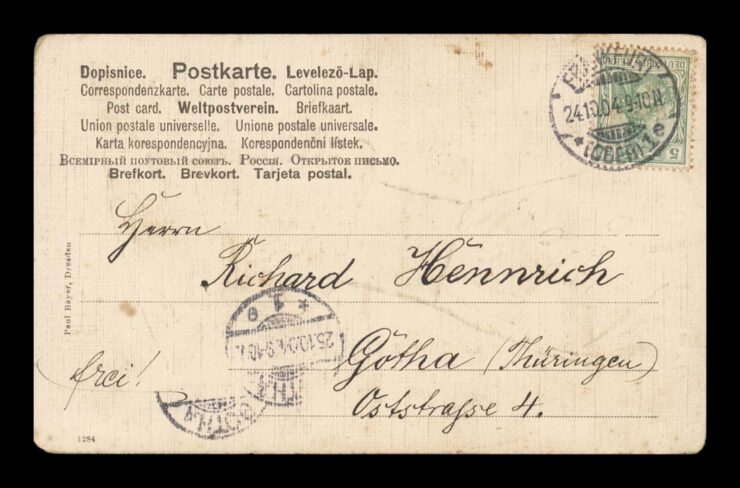 Dopisnice. Postkarte. Levelezö-Lap.
Correspondenzkarte. Carte postale. Cartolina postale.
Post card. Weltpostverein. Briefkaart.
Union postale universelle. Unione postale universale.
Karta korespondencyjna. Korespondenční lístek.
Всемірный почтовый союзъ. Россія. Открытое письмо.
Brefkort. Brevkort. Tarjeta postal.
DEUTSCHES REICH
5
FRANKFURT
24.10.04.9-10N
* (ODER) 1 e
Herrn
Richard Hennrich
Gotha (Thüringen)
Oststraße 4.
frei!
Paul Bayer, Dresden
* 1 e
25.10.04.9-10
GOTHA
1284